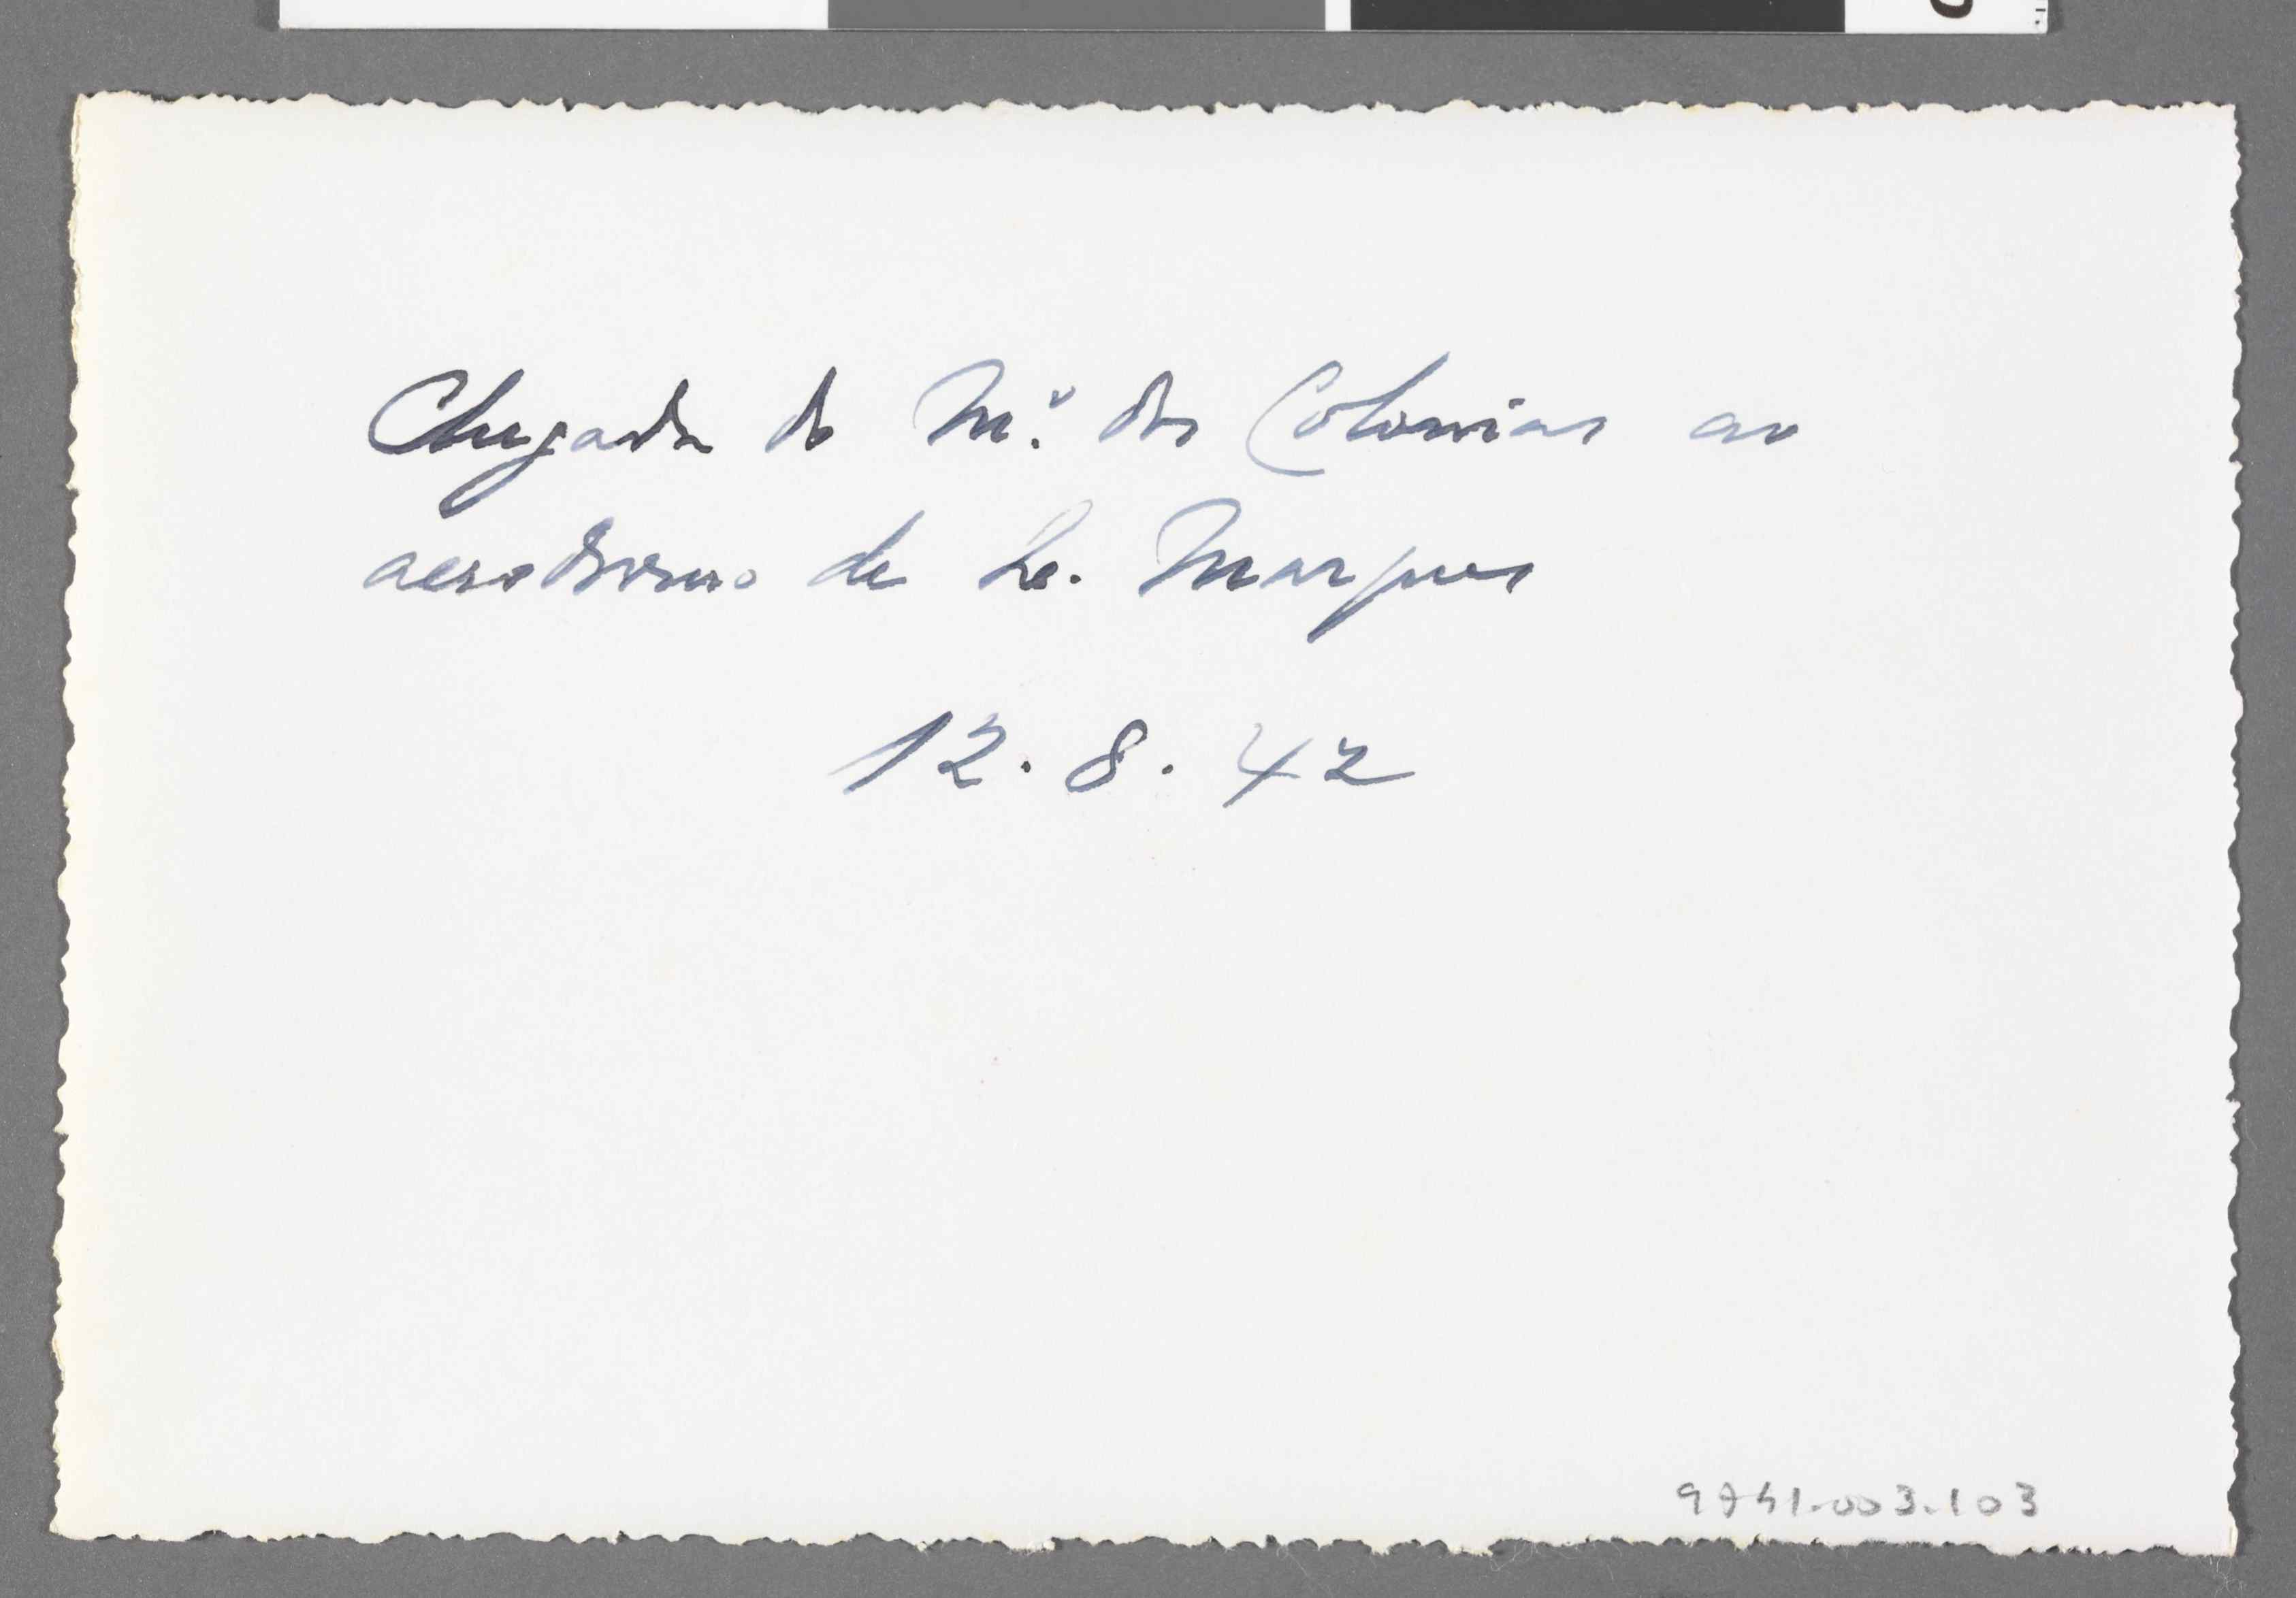 Chegada do M.º das Colonias ao
aerodromo de L. Marques
12.8.42
9741.003.103